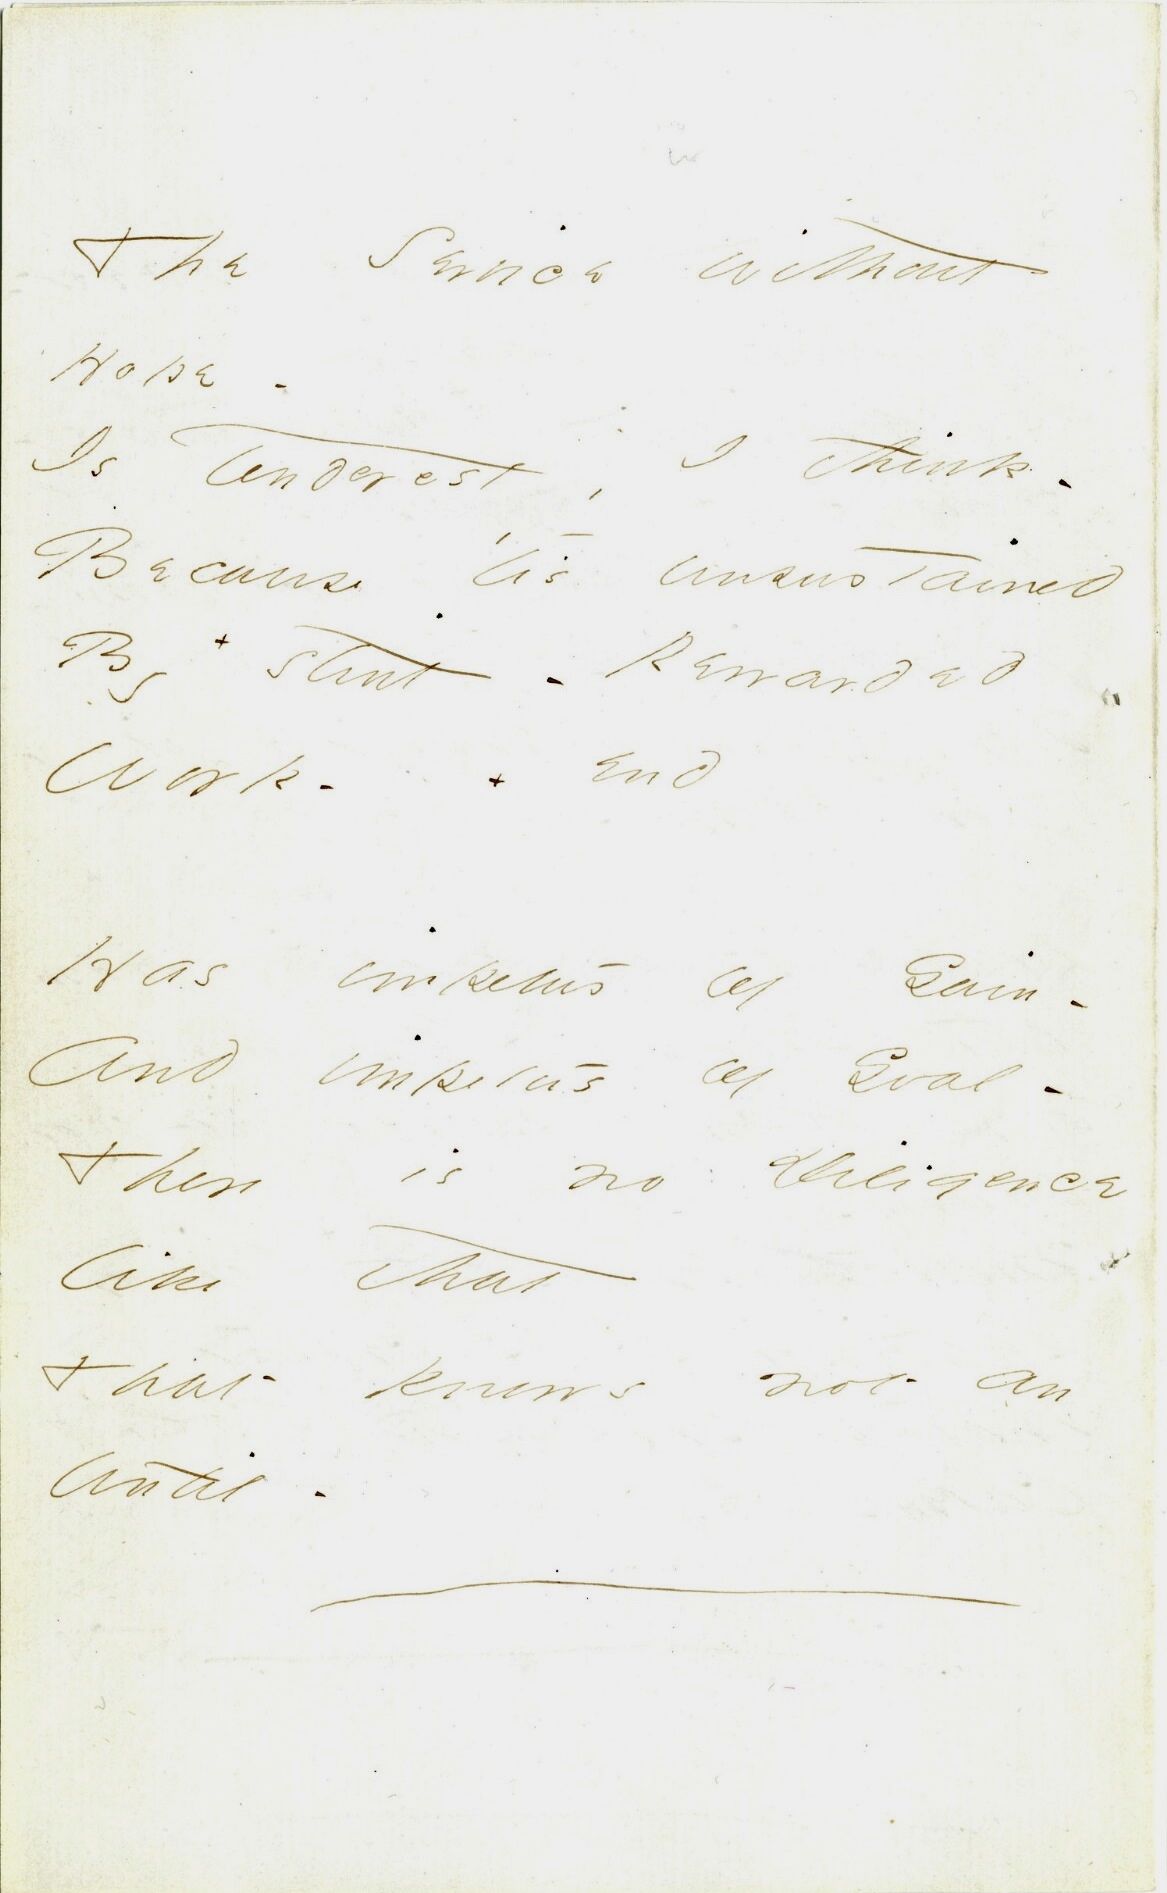 The Service without
Hope -
Is tenderest, I think -
Because 'tis unsustained
By + stint - Rewarded
Work - + end
Has impetus of Gain -
And impetus of Goal -
There is no Diligence
like that
That knows not an
Until -